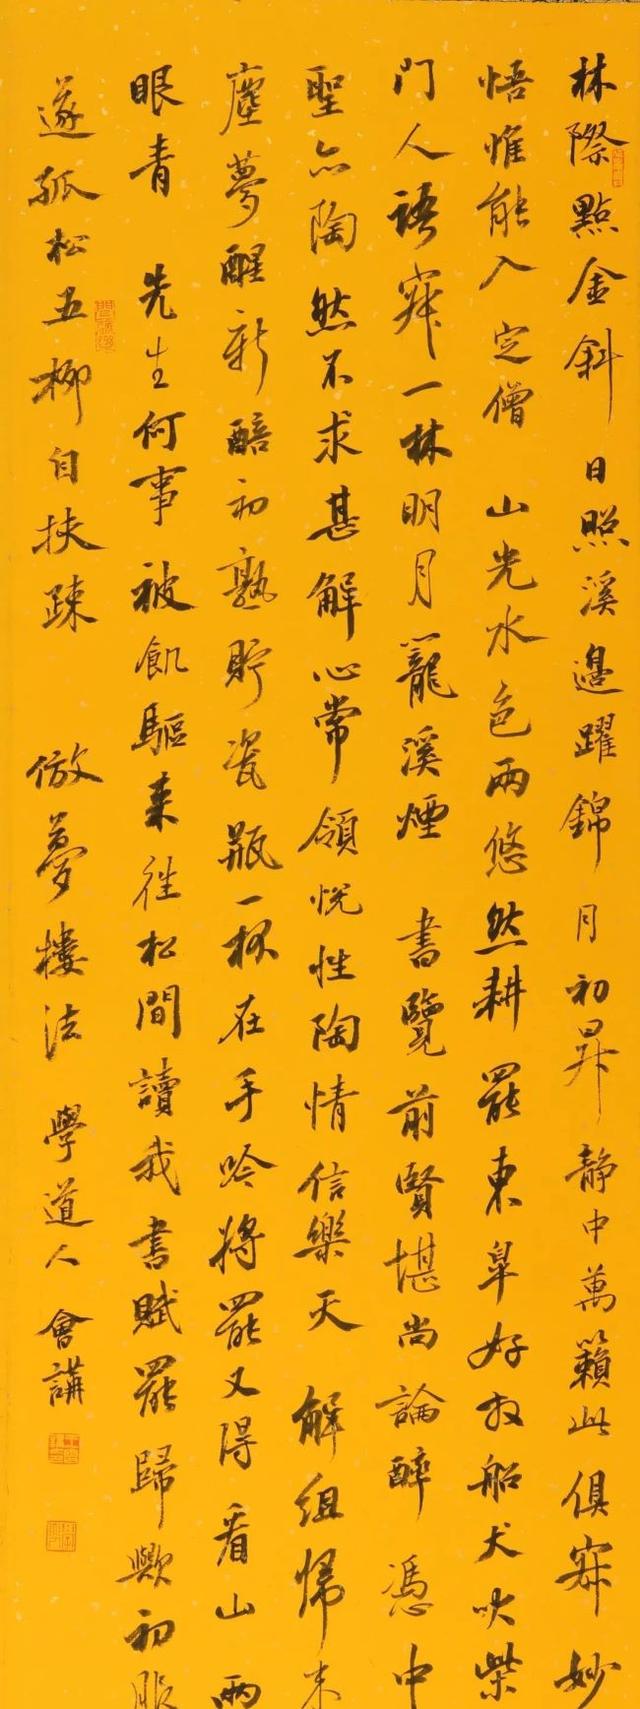 林際點金斜 日照溪邊躍錦月初昇 静中萬籟此俱寂妙
悟惟能入定僧 山光水色兩悠然耕罷東皐好放船犬吠柴
門人語寂一林明月籠溪煙 書覽前賢堪尚論醉憑中
聖亦陶然不求甚解心常領悦性陶情信樂天 解組帰来
塵夢醒新醅初熟貯瓷瓶一杯在手吟將罷又得看山兩
眼青 先生何事被飢驅来往松間讀我書賦罷歸歟初服
遂孤松五柳自扶疎 倣夢樓法 學道人會講